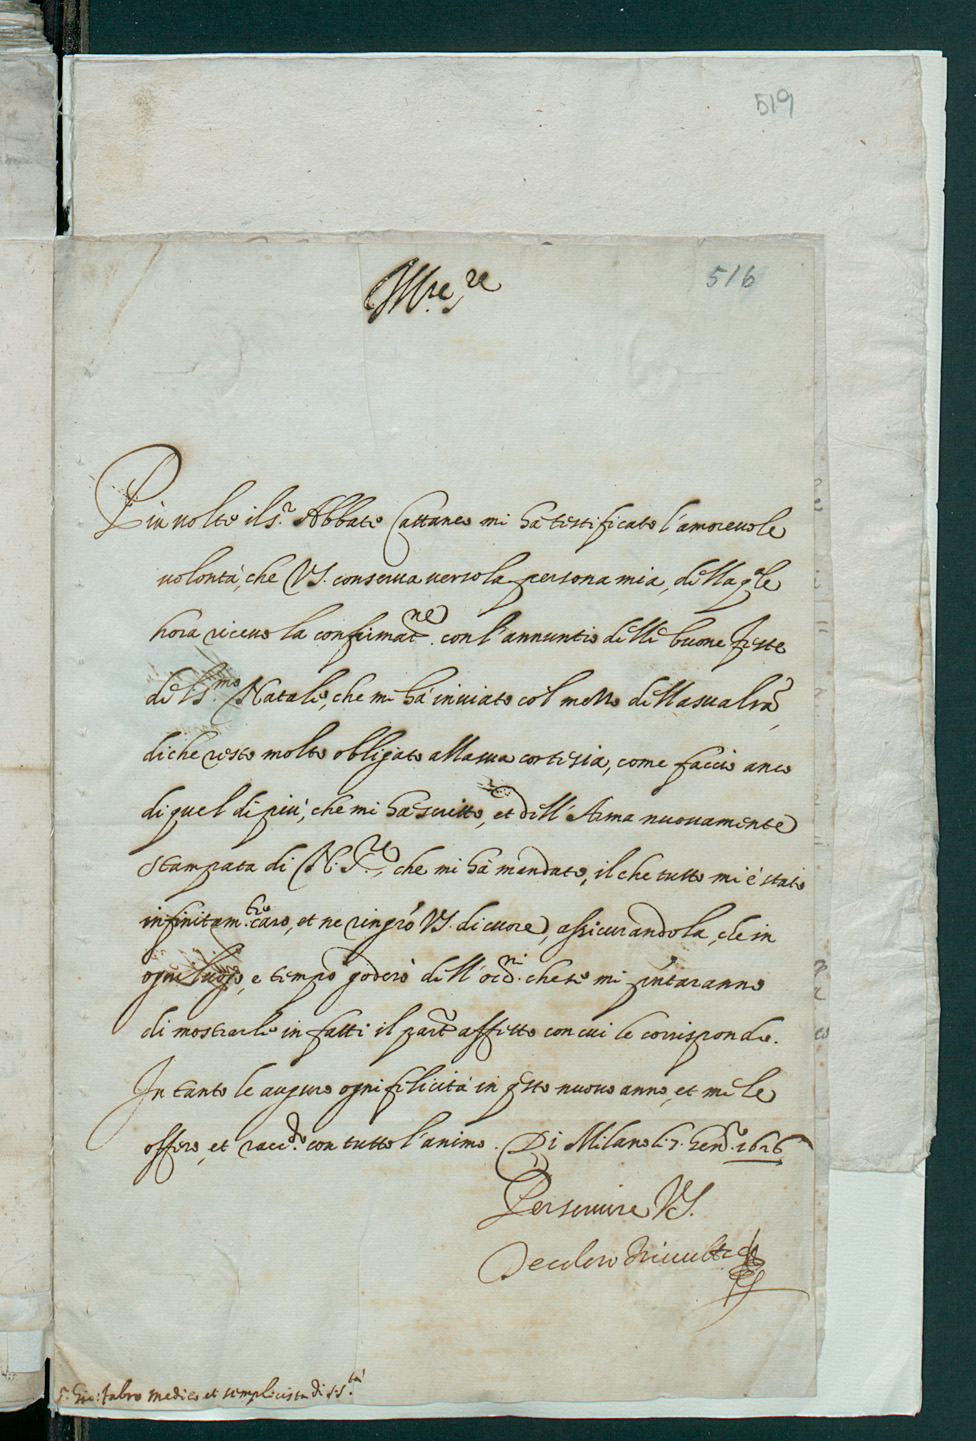 519
516
Ill.re S.re
Piu uolte il S.r Abbate Cattaneo mi ha testificato l'amoreuole
uolontà, che VS. conserua uerso la persona mia, della q̃le
hora riceuo la confirmat.ne con l'annuntio delle buone feste
del S.mo Natale, che mi hà inuiato col mezzo della sua lrã,
di che resto molto obligato alla sua cortesia, come faccio anco
di quel di più, che mi hà scritto, et dell'Arma nuouamente
stampata di N. S.re, che mi hà mandato, il che tutto mi è stato
infinitam.te caro, et ne ringrõ VS. di cuore, assicurandola, che in
ogni luogo, e tempo goderò dell'occ.ni che se mi p̃ntaranno
di mostrarle in fatti il part.e affetto con cui le corrispondo.
In tanto le auguro ogni felicità in q̃sto nuouo anno, et me le
offero, et racc.do con tutto l'animo. Di Milano li 7. Gen.o 1626
Per seruire VS.
Teodoro Triuultio
S. Gio: fabro medico et semplicista di S. S.tà